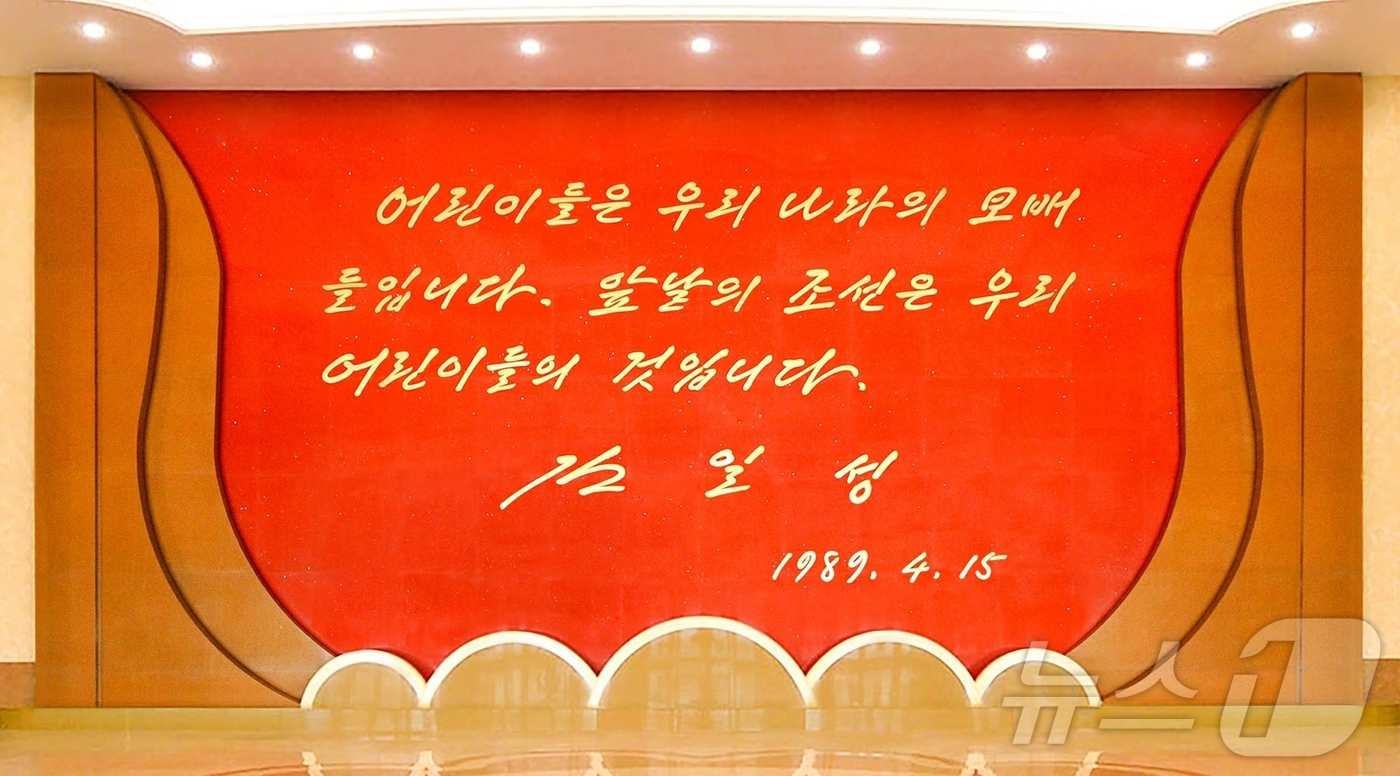 어린이들은 우리 나라의 보배
들입니다. 앞날의 조선은 우리
어린이들의 것입니다.
김 일 성
1989. 4. 15
뉴스1